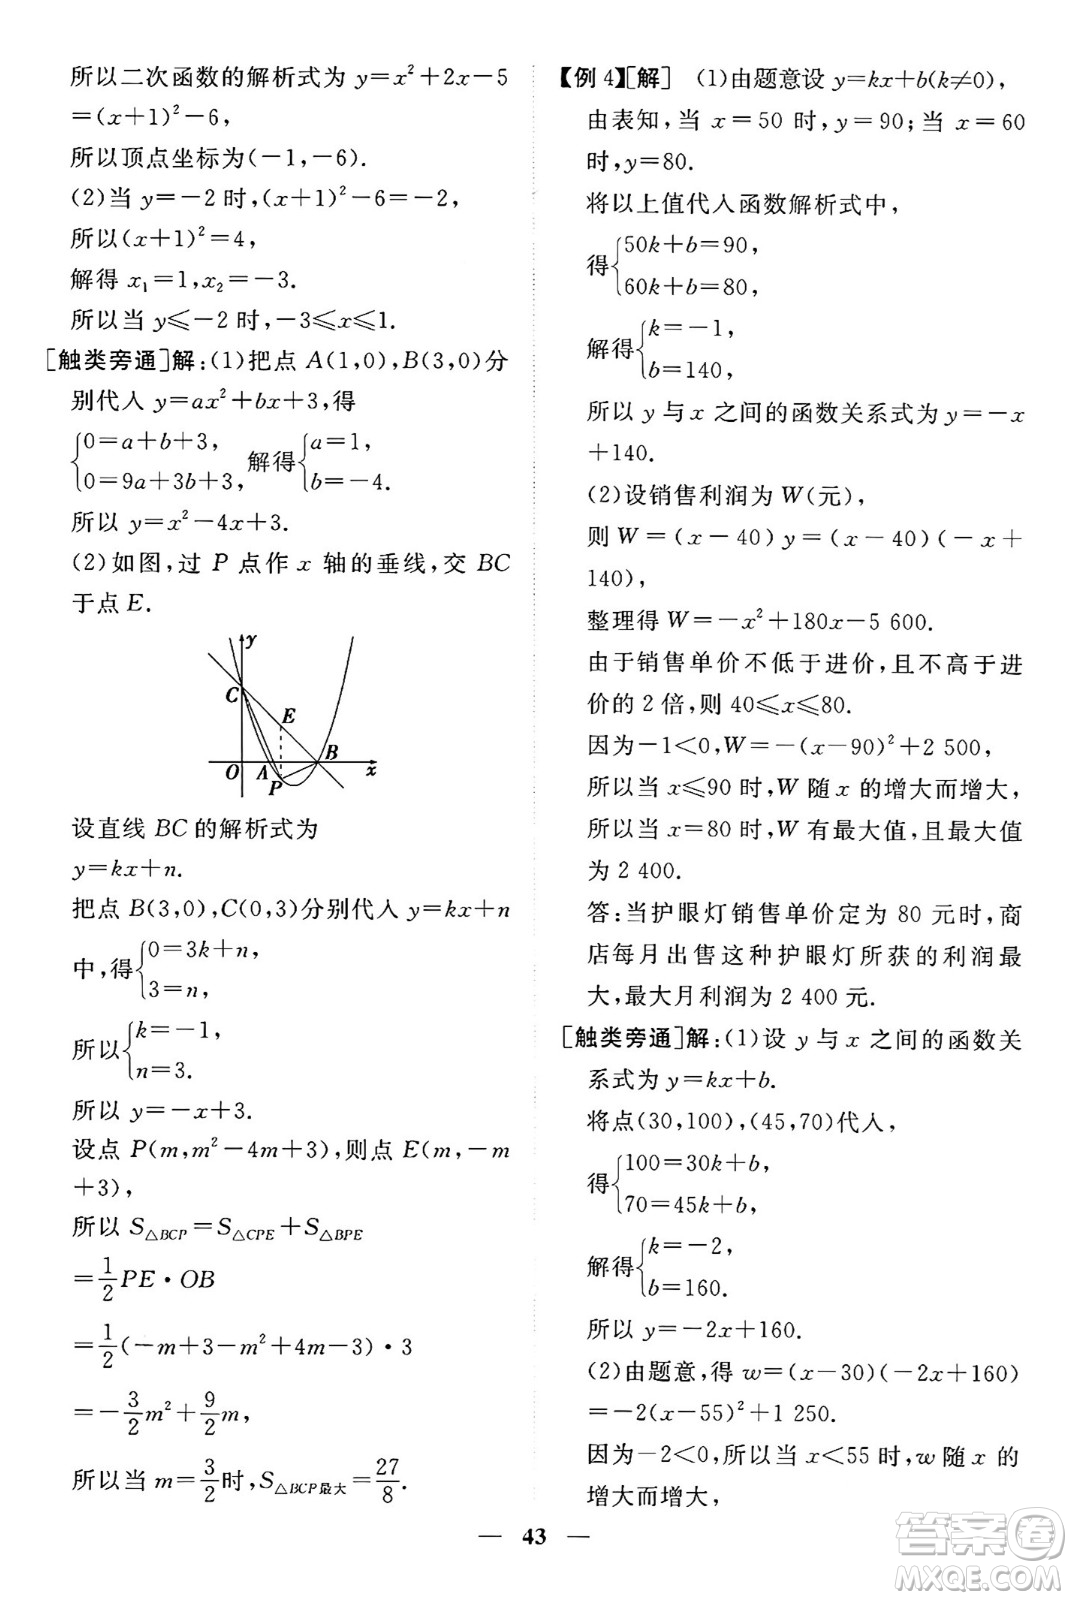 所以二次函数的解析式为 y=x²+2x-5
=(x+1)²-6,
所以顶点坐标为(-1,-6).
(2)当 y=-2 时,(x+1)²-6=-2,
所以(x+1)²=4,
解得 x₁=1,x₂=-3.
所以当 y⩽-2 时,-3⩽x⩽1.
[触类旁通]解:(1)把点 A(1,0),B(3,0)分
别代入 y=ax²+bx+3,得
{0=a+b+3, 0=9a+3b+3, 解得{a=1, b=-4.
所以 y=x²-4x+3.
(2)如图,过 P 点作 x 轴的垂线,交 BC
于点 E.
y
C
E
O A B
P x
设直线 BC 的解析式为
y=kx+n.
把点 B(3,0),C(0,3)分别代入 y=kx+n
中,得{0=3k+n, 3=n,
所以{k=-1, n=3.
所以 y=-x+3.
设点 P(m,m²-4m+3),则点 E(m,-m
+3),
所以 S△BCP=S△CPE+S△BPE
=1/2 PE·OB
=1/2(-m+3-m²+4m-3)·3
=-3/2 m²+9/2 m,
所以当 m=3/2 时,S△BCP最大=27/8.
【例 4】[解] (1)由题意设 y=kx+b(k≠0),
由表知,当 x=50 时,y=90;当 x=60
时,y=80.
将以上值代入函数解析式中,
得{50k+b=90, 60k+b=80,
解得{k=-1, b=140,
所以 y 与 x 之间的函数关系式为 y=-x
+140.
(2)设销售利润为 W(元),
则 W=(x-40)y=(x-40)(-x+
140),
整理得 W=-x²+180x-5 600.
由于销售单价不低于进价,且不高于进
价的 2 倍,则 40⩽x⩽80.
因为-1<0,W=-(x-90)²+2 500,
所以当 x⩽90 时,W 随 x 的增大而增大,
所以当 x=80 时,W 有最大值,且最大值
为 2 400.
答:当护眼灯销售单价定为 80 元时,商
店每月出售这种护眼灯所获的利润最
大,最大月利润为 2 400 元.
[触类旁通]解:(1)设 y 与 x 之间的函数关
系式为 y=kx+b.
将点(30,100),(45,70)代入,
得{100=30k+b, 70=45k+b,
解得{k=-2, b=160.
所以 y=-2x+160.
(2)由题意,得 w=(x-30)(-2x+160)
=-2(x-55)²+1 250.
因为-2<0,所以当 x<55 时,w 随 x 的
增大而增大,
— 43 —
答案圈
MXQE.COM